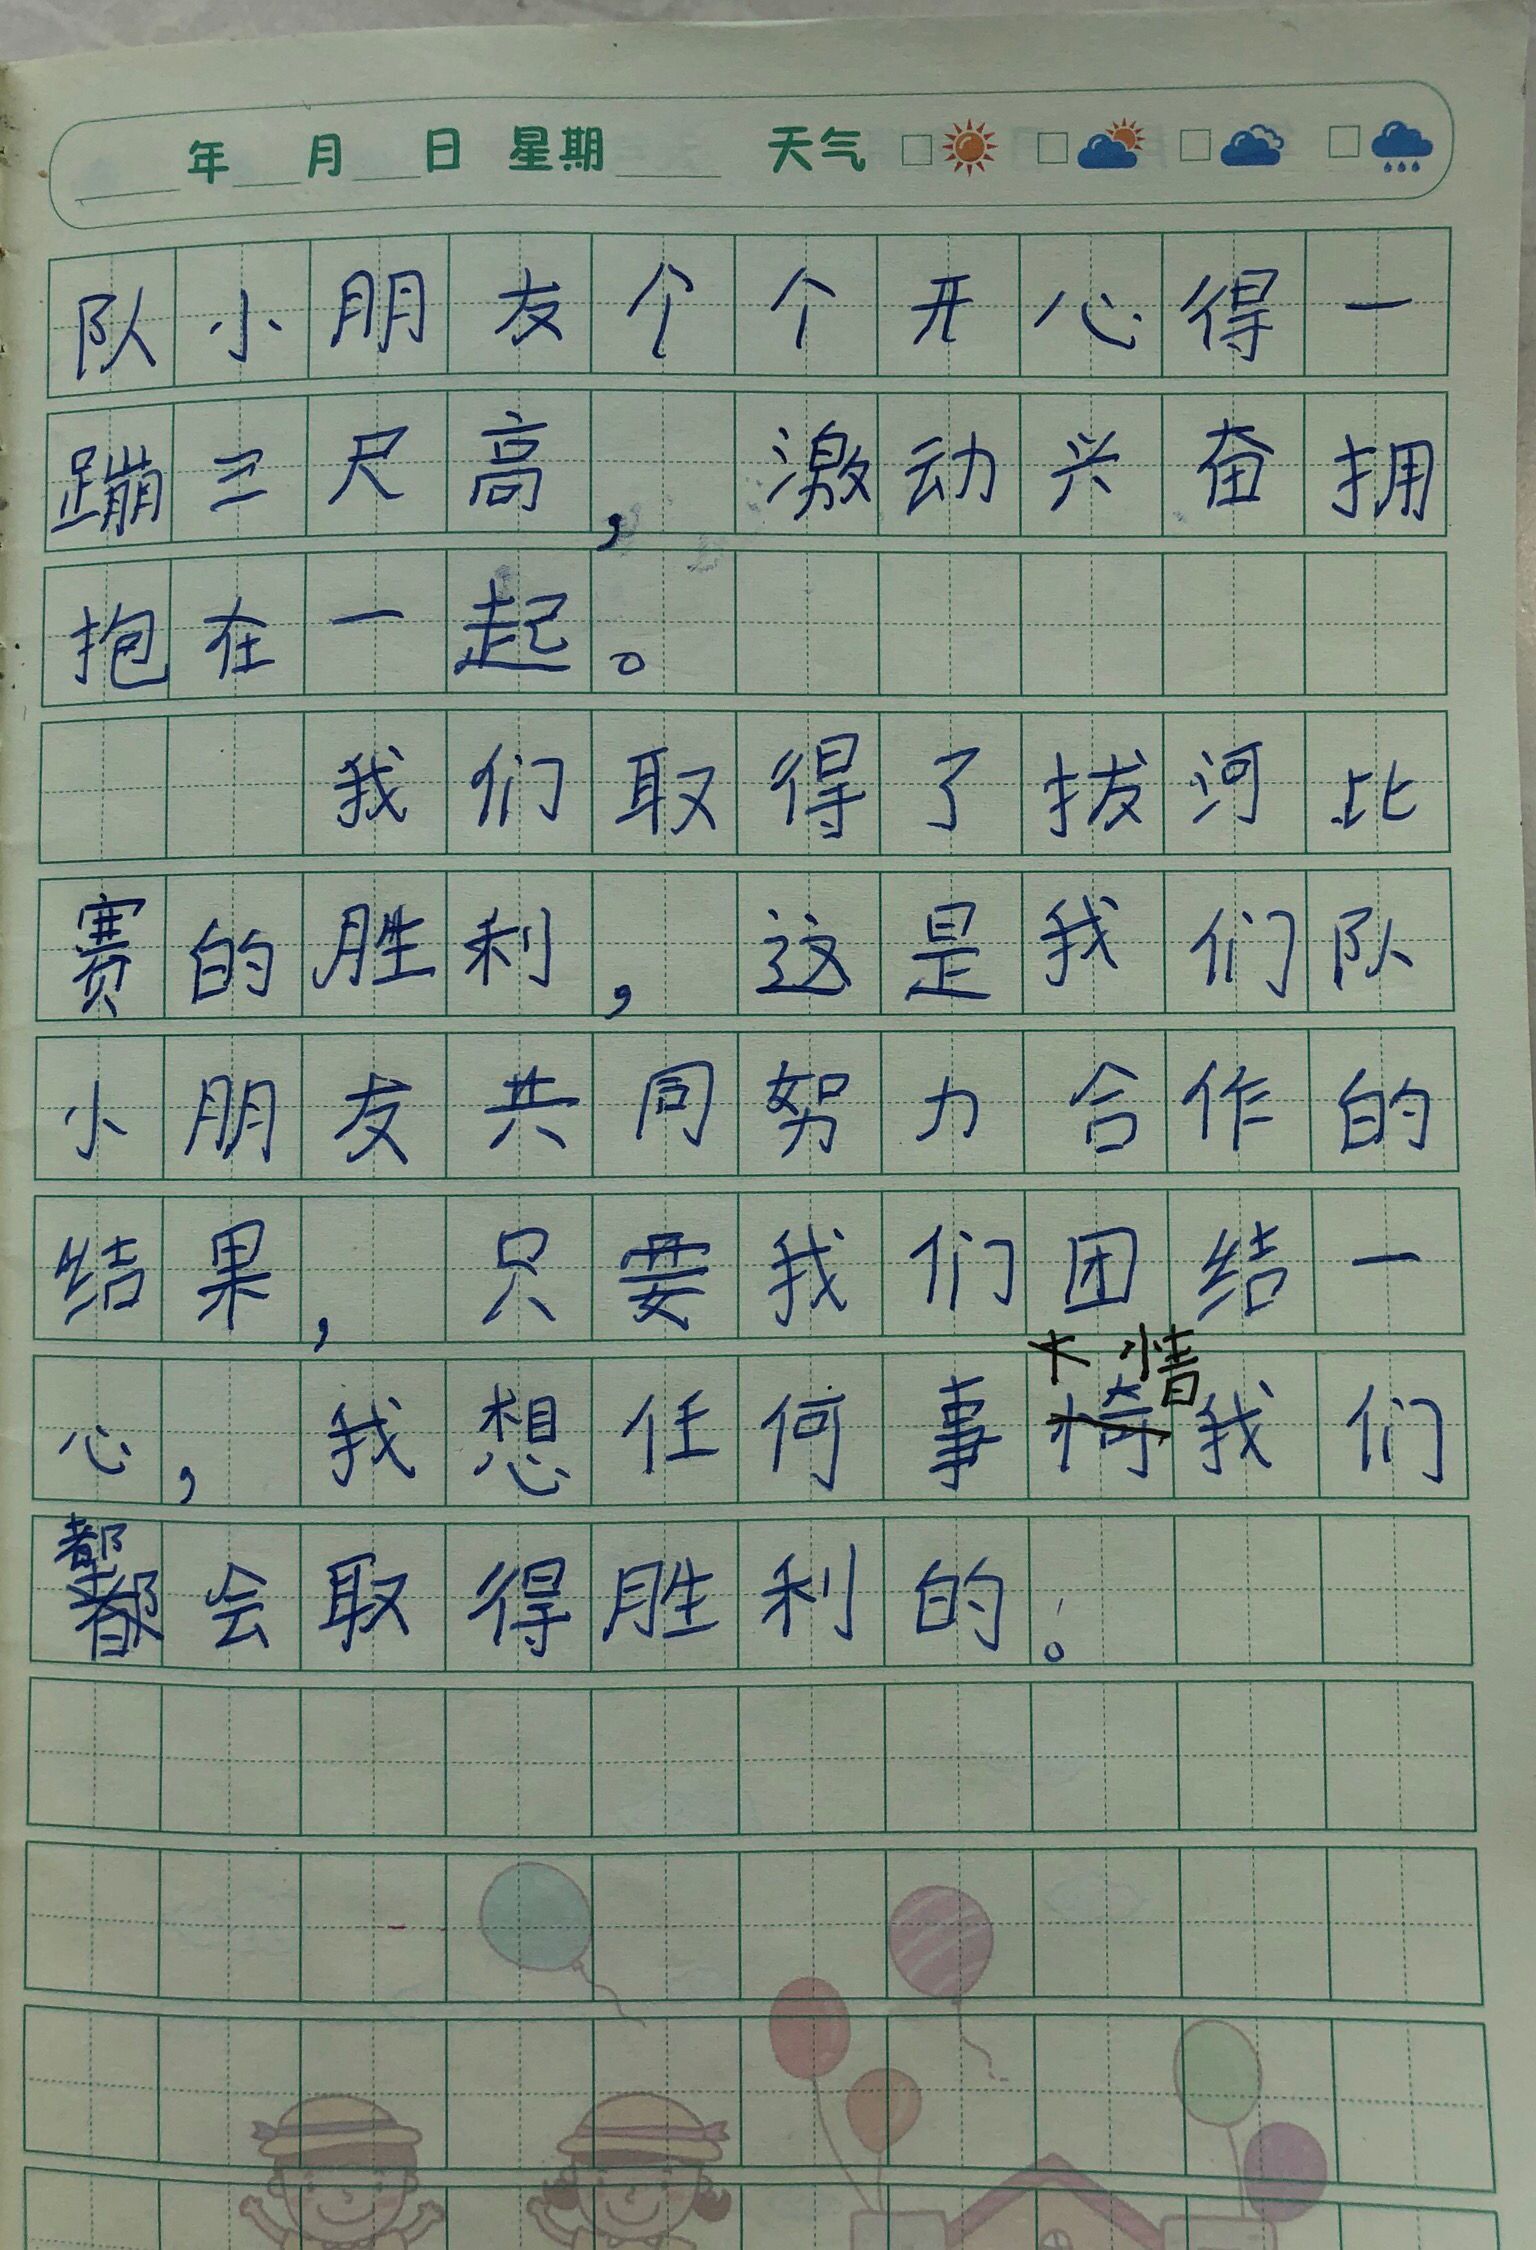 年 月 日 星期 天气
队小朋友个个开心得一
蹦三尺高,激动兴奋拥
抱在一起。
我们取得了拔河比
赛的胜利,这是我们队
小朋友共同努力合作的
结果,只要我们团结一
情
心,我想任何事我们
都
都会取得胜利的!